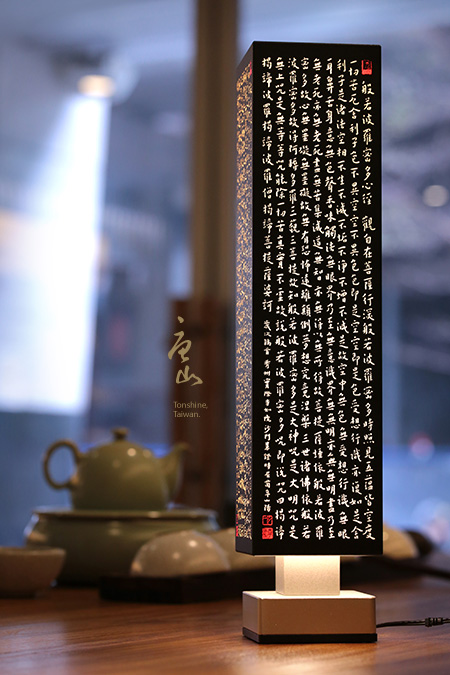 般若波羅蜜多心經 觀自在菩薩行深般若波羅蜜多時照見五蘊皆空度
一切苦厄舍利子色不異空空不異色色即是空空即是色受想行識亦復如是舍
利子是諸法空相不生不滅不垢不淨不增不減是故空中無色無受想行識無眼
耳鼻舌身意無色聲香味觸法無眼界乃至無意識界無無明亦無無明盡乃至
無老死亦無老死盡無苦集滅道無智亦無得以無所得故菩提薩埵依般若波羅
蜜多故心無罣礙無罣礙故無有恐怖遠離顛倒夢想究竟涅槃三世諸佛依般若
波羅蜜多故得阿耨多羅三藐三菩提故知般若波羅蜜多是大神咒是大明咒是
無上咒是無等等咒能除一切苦真實不虛故說般若波羅蜜多咒即說咒曰揭諦
揭諦波羅揭諦波羅僧揭諦菩提薩婆訶
唐山
Tonshine,
Taiwan.